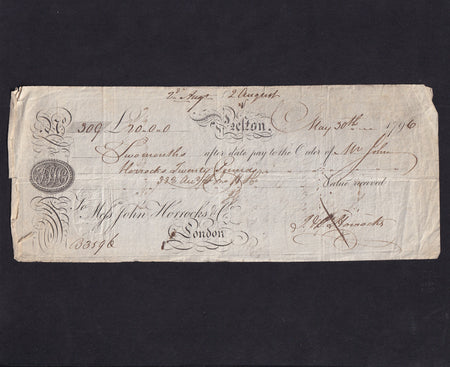 2d Augt 2 August
No 309 £20-0-0 Preston. May 30th 1796
Two months after date pay to the Order of Mr John
Horrocks Twenty Pounds
Value received
To Messrs John Horrocks & Co
Horrocks
B3596 London